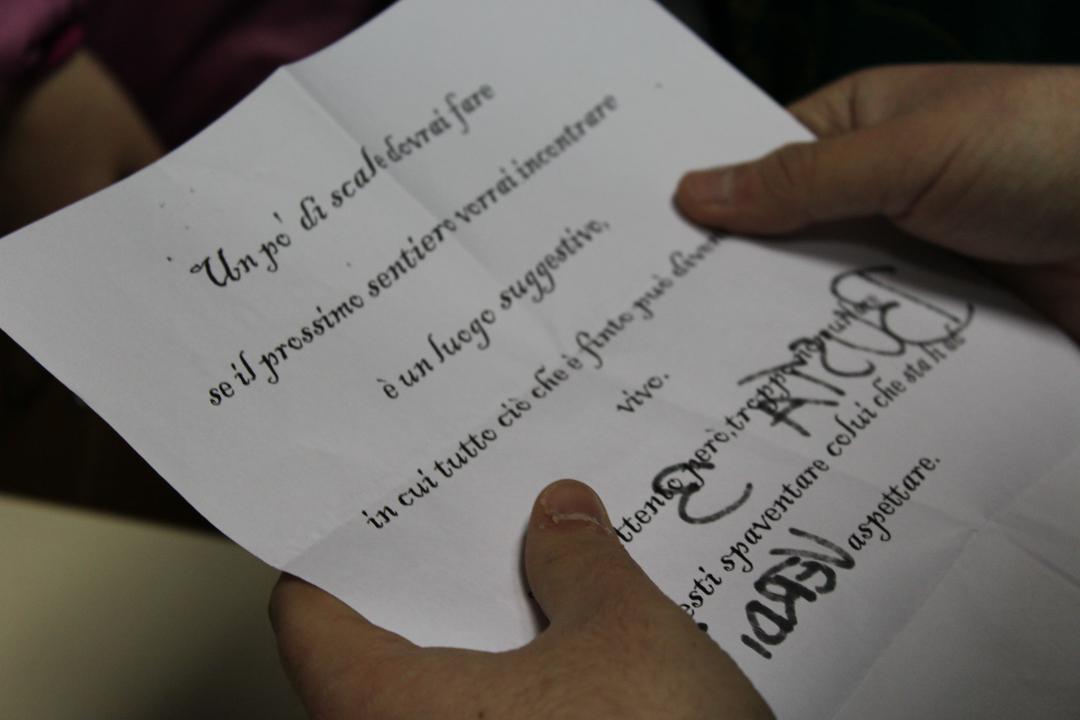 Un pò di scale dovrai fare
se il prossimo sentiero vorrai incontrare
è un luogo suggestivo,
in cui tutto ciò che è finto può
vivo.
però, troppo
spaventare colui che sta lì ad
aspettare.
E
VERDI